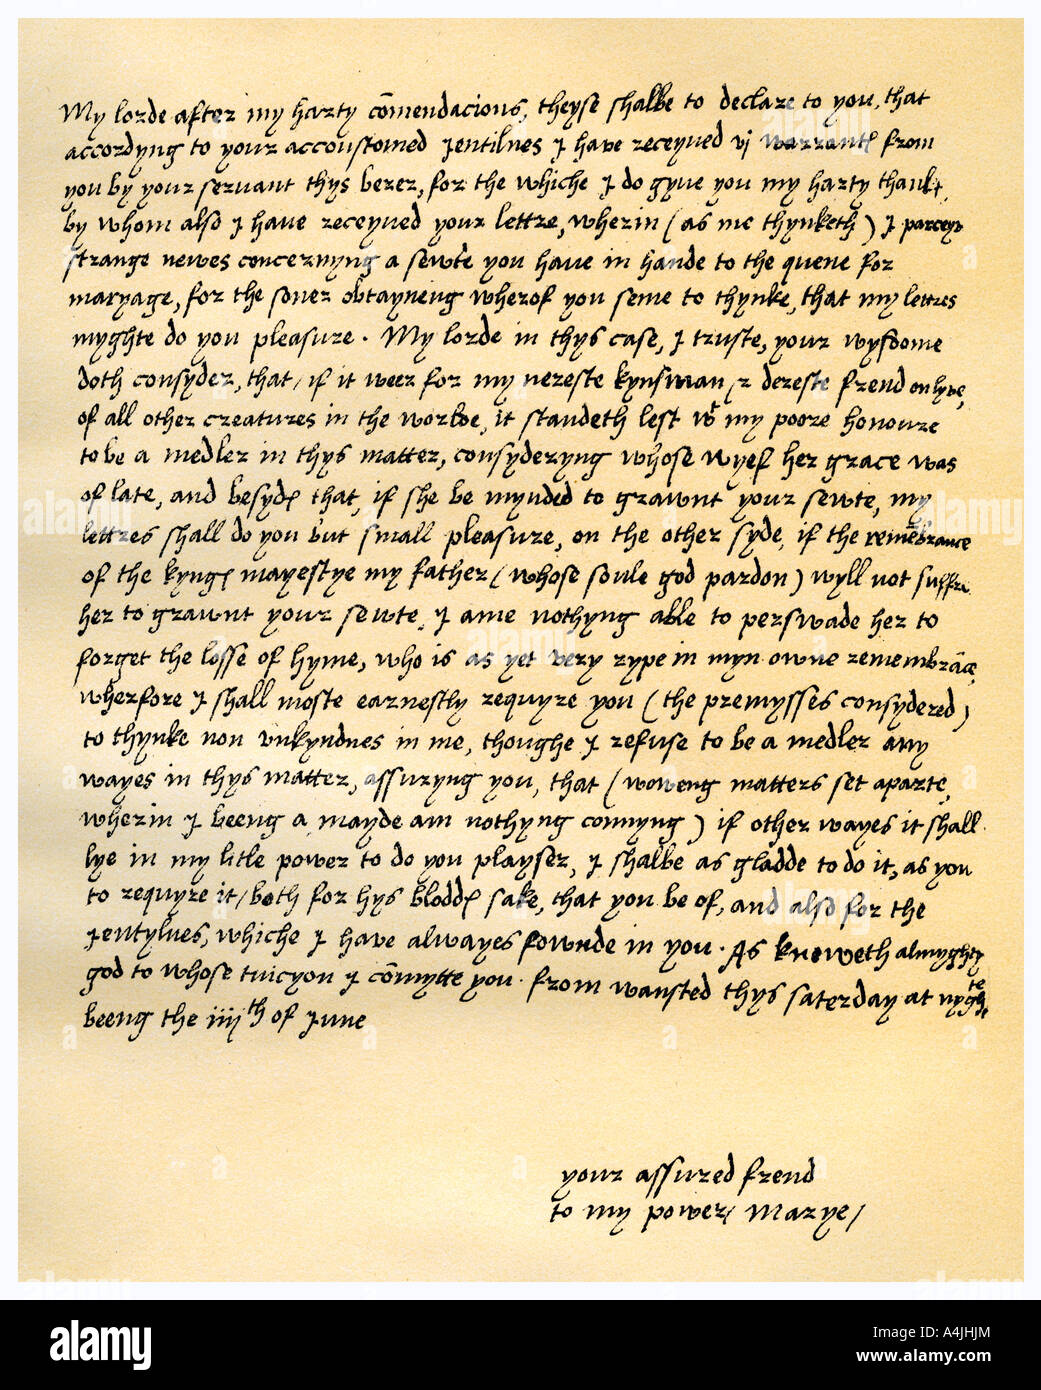 My lorde after my harty cōmendacions, theyse shalbe to declare to you, that
accordyng to your accoustomed jentilnes I have receyued vj warrantꝭ from
you by your servant thys berer, for the whiche I do gyve you my harty thankꝭ,
by whom also I have receyued your lettre, wherin (as me thynketh) I parceyv
strange newes concernyng a sewte you have in hande to the quene for
maryage, for the soner obtayneng wherof you seme to thynke, that my lettres
myghte do you pleasure. My lorde in thys case, I truste, your wysdome
doth consyder, that, if it weer for my nereste kynsman, & dereste frend on lyve,
of all other creatures in the worlde, it standeth lest wᵗ my poore honoure
to be a medler in thys matter, consyderyng whose wyef her grace was
of late, and besydꝭ that, if she be mynded to grawnt your sewte, my
lettres shall do you but small pleasure, on the other syde, if the remēbrance
of the kyngꝭ mayestye my father (whose soule god pardon) wyll not suffre
her to grawnt your sewte, I ame nothyng able to perswade her to
forget the losse of hyme, who is as yet very rype in myn owne remembrāce,
wherfore I shall moste earnestly requyre you (the premysses consydered)
to thynke non vnkyndnes in me, thoughe I refuse to be a medler any
wayes in thys matter, assuryng you, that (woweng matters set aparte,
wherin I beeng a mayde am nothyng connyng) if other wayes it shall
lye in my litle power to do you playser, I shalbe as gladde to do it, as you
to requyre it, both for hys bloddꝭ sake, that you be of, and also for the
jentylnes, whiche I have alwayes fownde in you. As knoweth almyghty
god to whose tuicyon I cōmytte you. from wansted thys saterday at nyghte,
beeng the iiijᵗʰ of June
your assured frend
to my power, Marye,
alamy
Image ID: A4JHJM
www.alamy.com